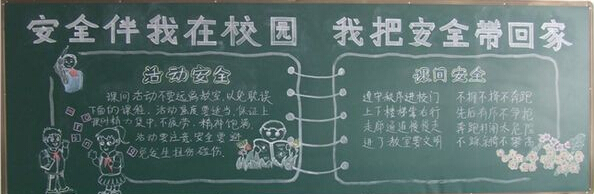 安全伴我在校园 我把安全带回家
活动安全
课间活动不要远离教室,以免耽误
下面的课程。活动强度要适当,保证上
课时精力集中 不疲劳、精神饱满。
活动要注意安全 要避
免发生扭伤碰伤。
课间安全
遵守秩序进校门 不拥不挤不奔跑
上下楼梯靠右行 先后有序不争抢
走廊通道慢慢走 奔跑打闹太危险
进了教室要文明 不蹦不跳不攀高